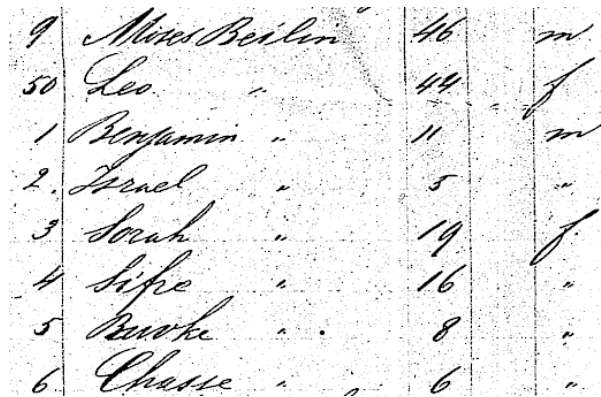 9 Moses Beilin 46 m
50 Leo " 44 f
1 Benjamin " 11 m
2. Israel " 5 "
3 Sorah " 19 f.
4 Sifre " 16 "
5 Buvke " 8 "
6 Chasse " 6 "